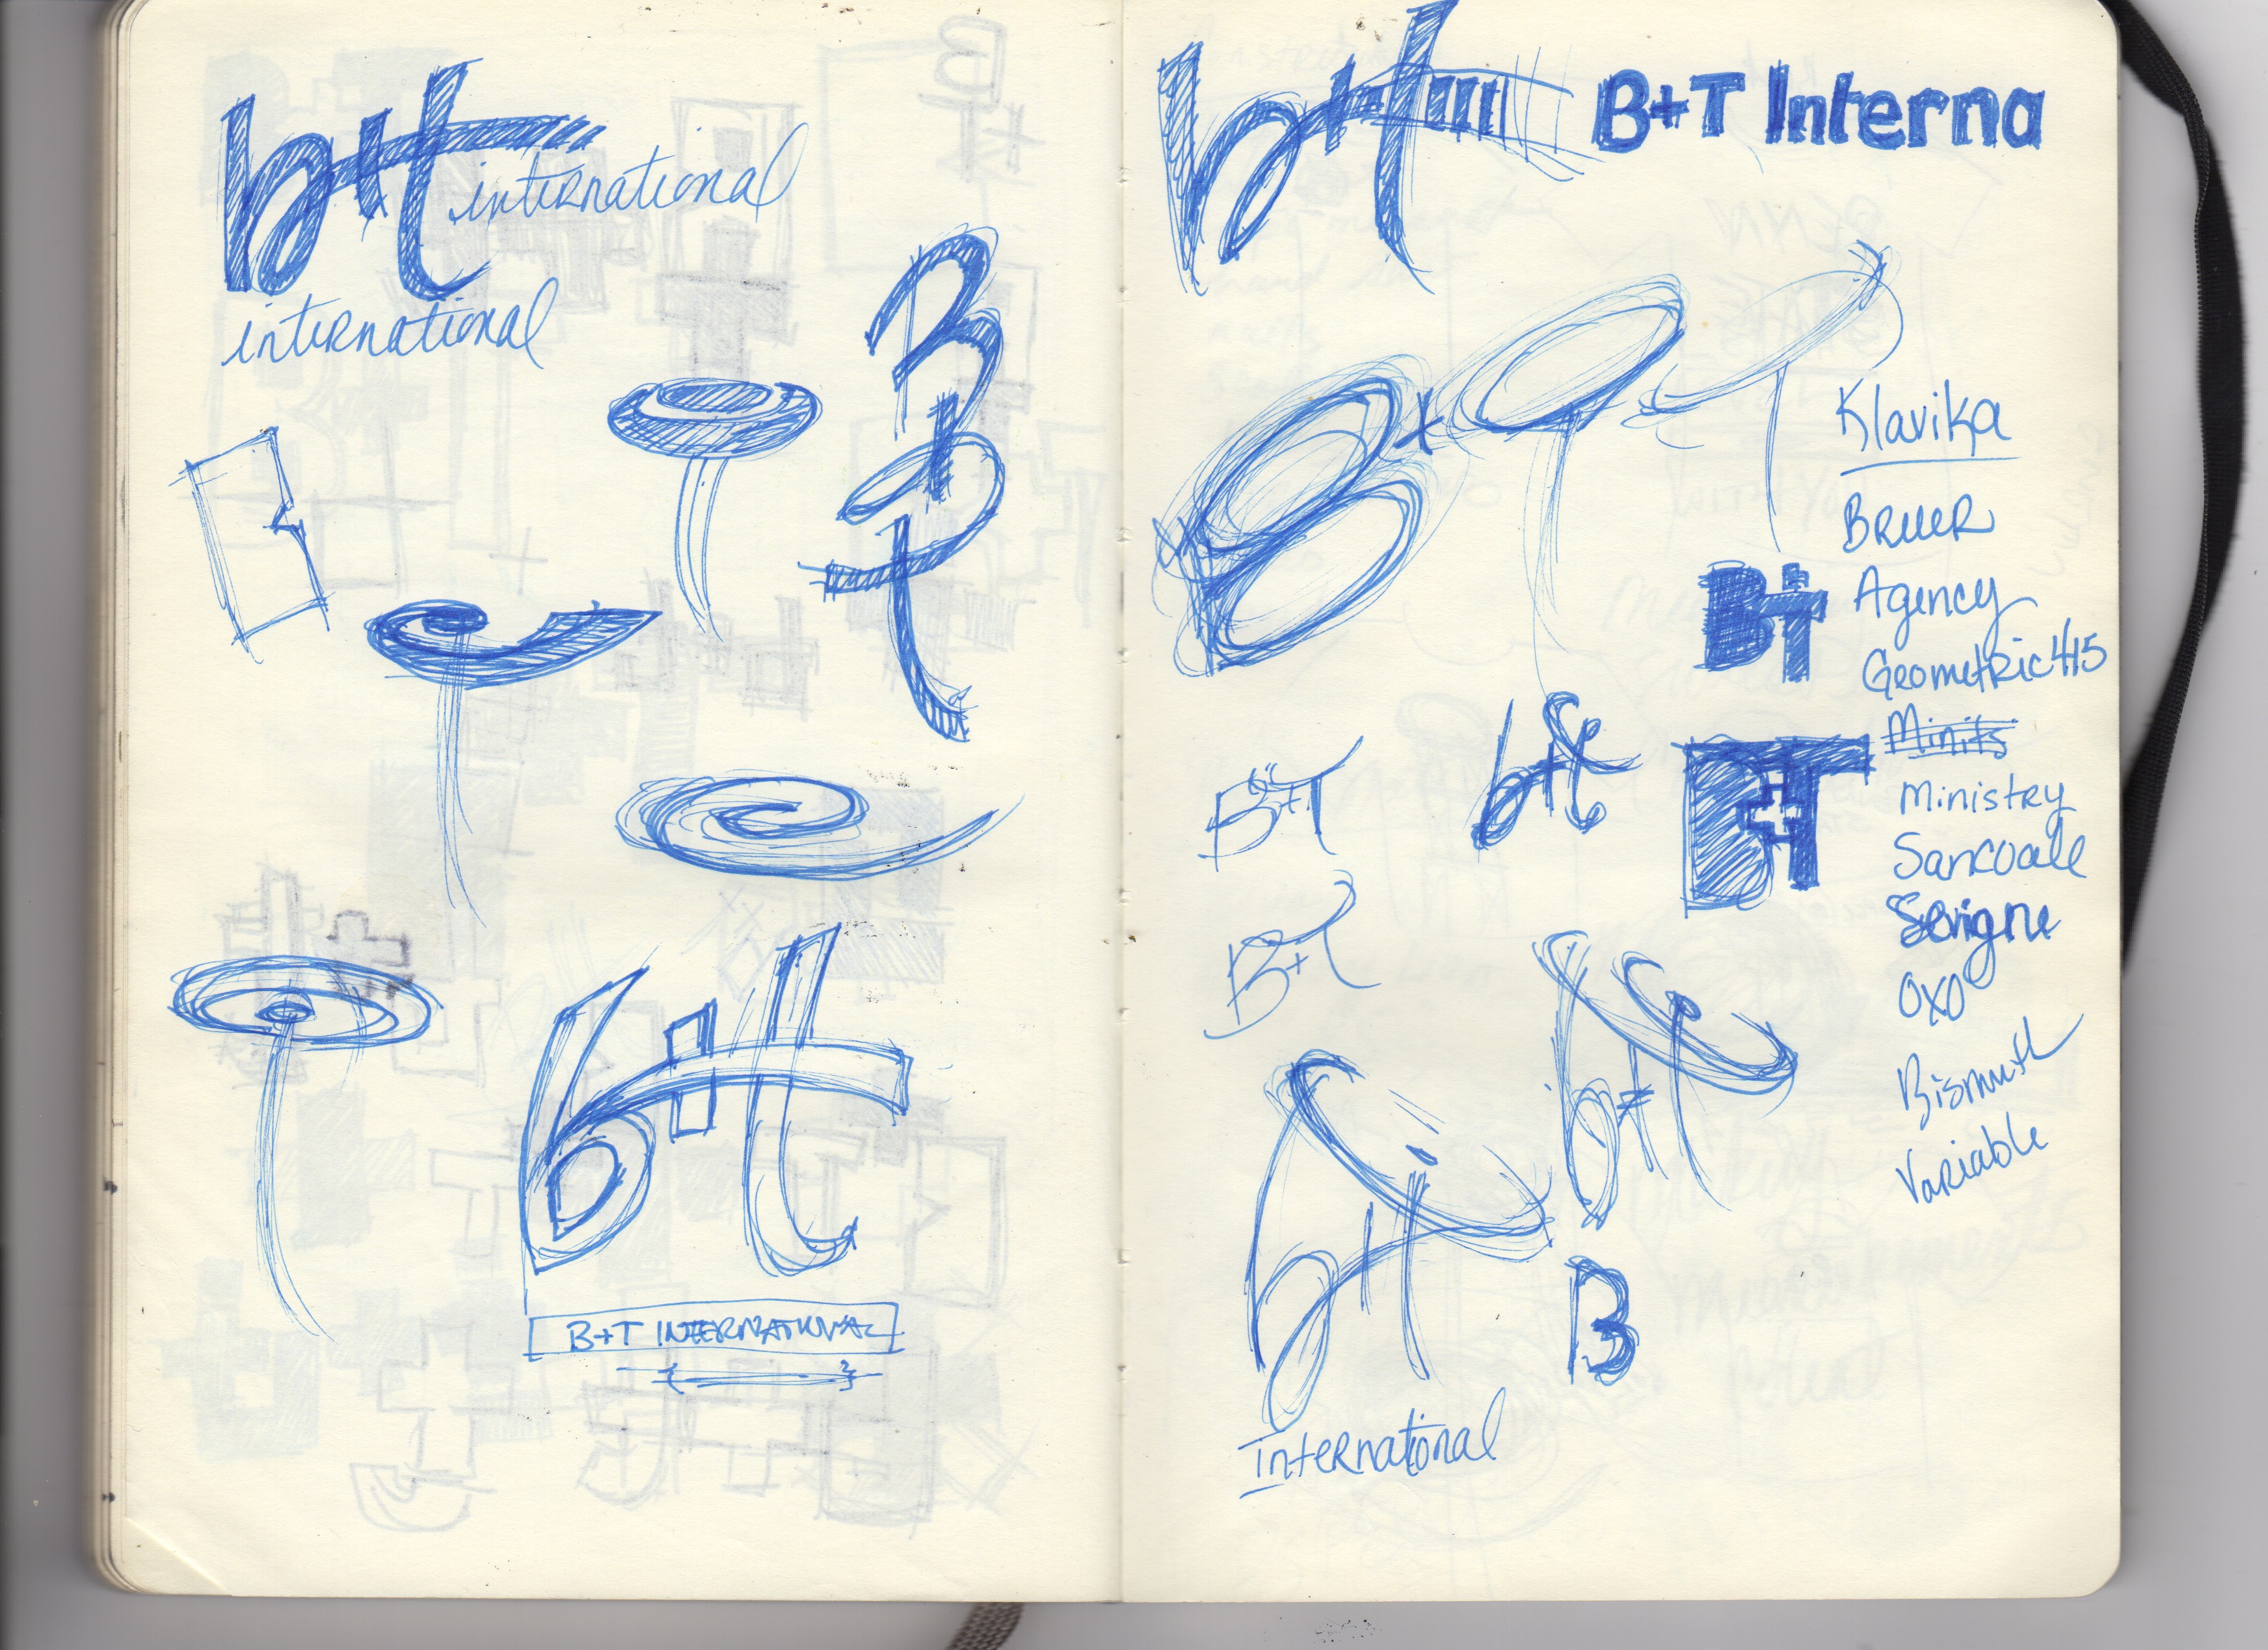 b+t international
international
B
+
T
b+t
B+T INTERNATIONAL
b+t
B+T Interna
B+T
Klavika
Bruer
Agency
Geometric 415
Minis
Ministry
Sancoale
Sevigne
OXO
Bismuth
Variable
B+T
b+t
B+T
B+T
B+T
b+t
b+t
B
International